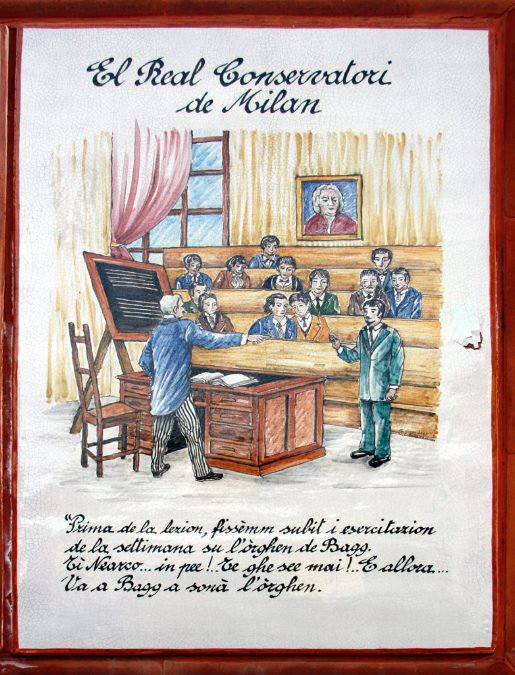 El Real Conservatori
de Milan
"Prima de la lezion, fissèmm subit i esercitazion
de la settimana su l'òrghen de Bagg.
Tì Nearco... in pee!.. Te ghe see mai!.. E allora...
Va a Bagg a sonà l'òrghen.